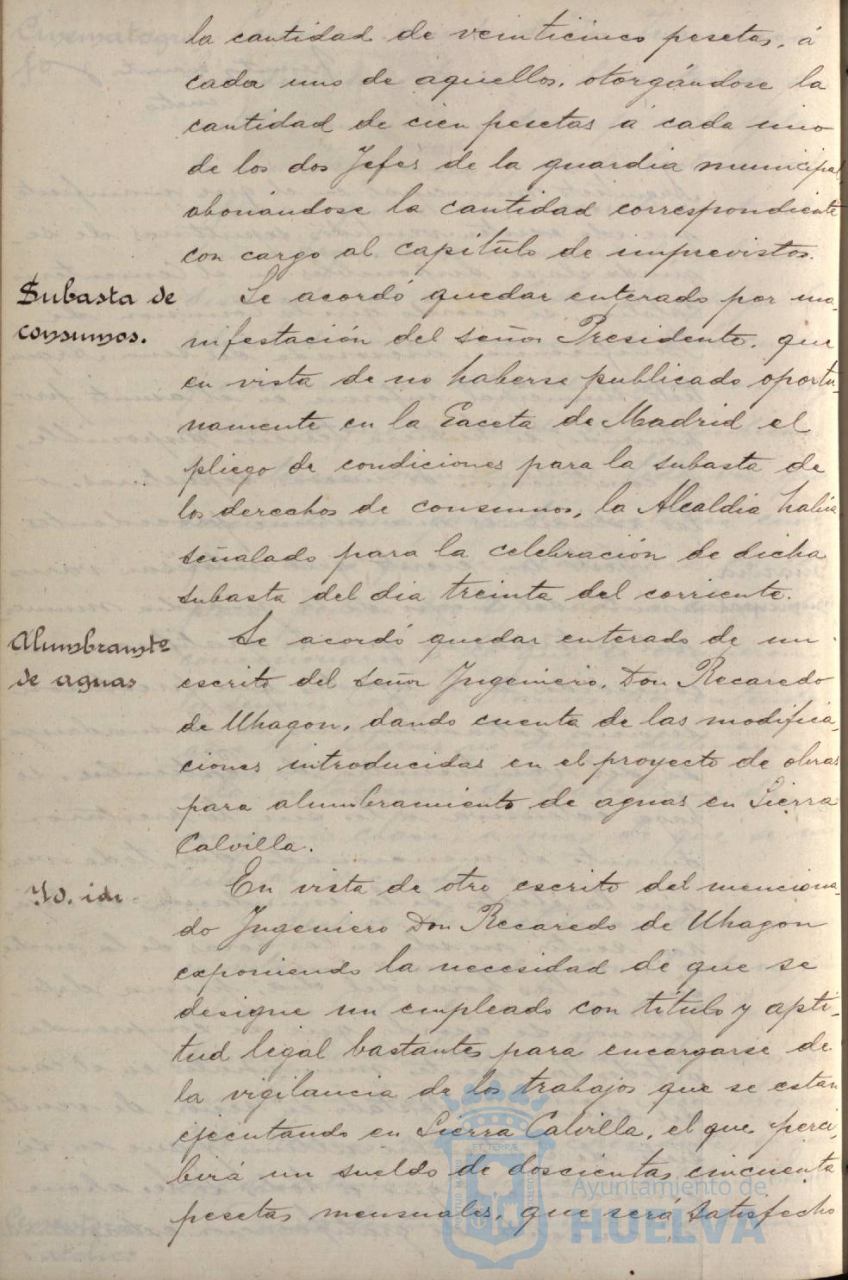 la cantidad de veinticinco pesetas, á
cada uno de aquellos, otorgándose la
cantidad de cien pesetas á cada uno
de los dos Jefes de la guardia municipal,
abonándose la cantidad correspondiente
con cargo al capítulo de imprevistos.
Subasta de
consumos.
Se acordó quedar enterado por ma-
nifestación del señor Presidente, que
en vista de no haberse publicado oportu-
namente en la Gaceta de Madrid el
pliego de condiciones para la subasta de
los derechos de consumos, la Alcaldía había
señalado para la celebración de dicha
subasta del dia treinta del corriente.
Alumbramto
de aguas
Se acordó quedar enterado de un
escrito del señor Ingeniero, Don Recaredo
de Uhagon, dando cuenta de las modifica-
ciones introducidas en el proyecto de obras
para alumbramiento de aguas en Sierra
Calvilla.
Yd. id.
En vista de otro escrito del menciona-
do Ingeniero Don Recaredo de Uhagon
exponiendo la necesidad de que se
designe un empleado con título y apti-
tud legal bastantes para encargarse de
la vigilancia de los trabajos que se estan
ejecutando en Sierra Calvilla, el que perci-
birá un sueldo de doscientas cincuenta
pesetas mensuales, que será satisfecho
Ayuntamiento de
HUELVA